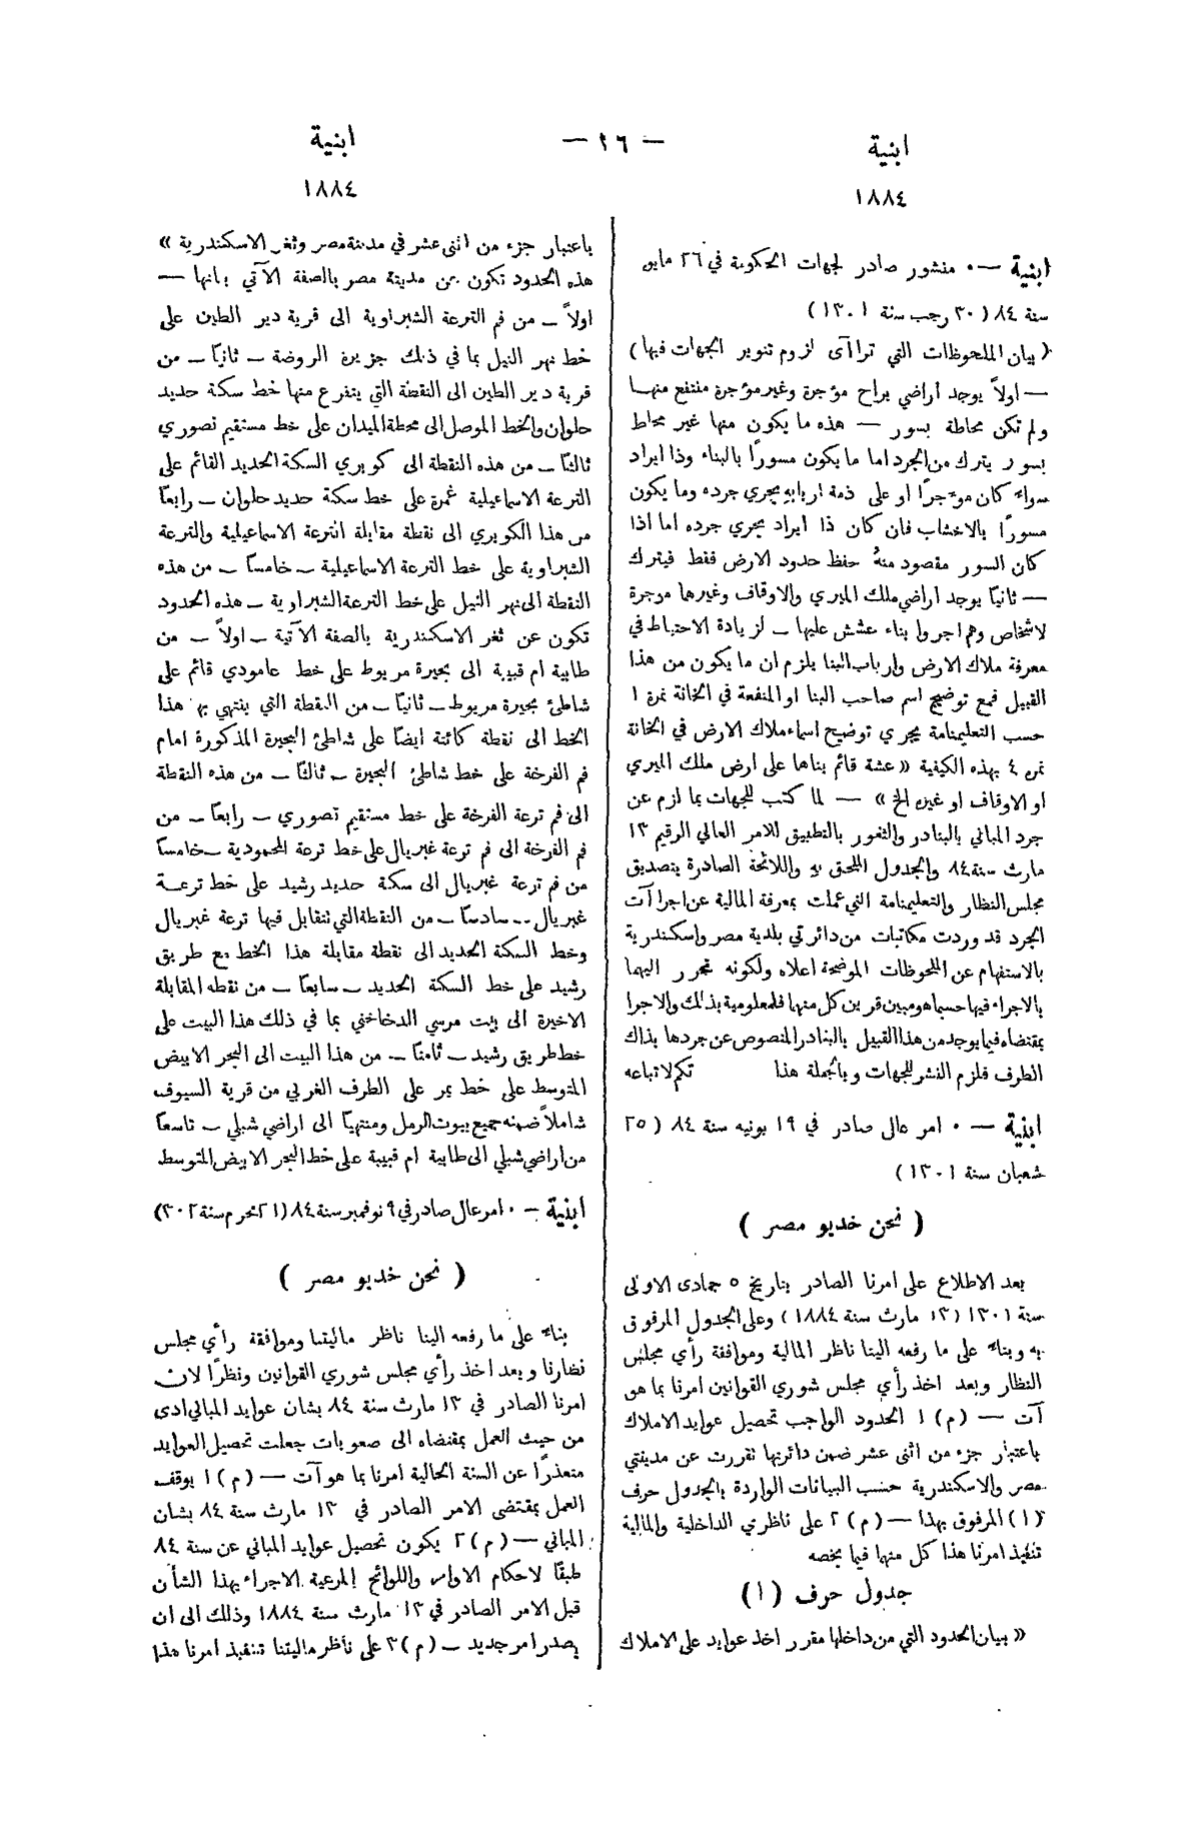 ابنية
١٨٨٤
— ٢٦ —
ابنية
١٨٨٤
ابنية — ٠ منشور صادر لجهات الحكومة في ٢٦ مايو
سنة ٨٤ ( ٣٠ رجب سنة ١٣٠١ )
( بيان الملحوظات التي تراآى لزوم تنوير الجهات فيها )
— اولاً يوجد أراضي براح مؤجرة وغير مؤجرة منتفع منها
ولم تكن محاطة بسور — هذه ما يكون منها غير محاط
بسور يترك من الجرد اما ما يكون مسورًا بالبناء وذا ايراد
سواء كان موءجرًا او على ذمة اربابه يجري جرده وما يكون
مسورًا بالاخشاب فان كان ذا ايراد يجري جرده اما اذا
كان السور مقصود منهُ حفظ حدود الارض فقط فيترك
— ثانيًا يوجد اراضي ملك الميري والاوقاف وغيرها موجرة
لاشخاص وهم اجروا بناء عشش عليها — لزيادة الاحتياط في
معرفة ملاك الارض وارباب البنا يلزم ان ما يكون من هذا
القبيل فمع توضيح اسم صاحب البنا او المنفعة في الخانة نمرة ١
حسب التعليمنامة يجري توضيح اسماء ملاك الارض في الخانة
نمره ٤ بهذه الكيفية « عشة قائم بناها على ارض ملك الميري
او الاوقاف او غيره الخ » — لما كتب للجهات بما لزم عن
جرد المباني بالبنادر والثغور بالتطبيق للامر العالي الرقيم ١٣
مارث سنة ٨٤ والجدول الملحق به واللائحة الصادرة بتصديق
مجلس النظار والتعليمنامة التي عملت بمعرفة المالية عن اجراآت
الجرد قد وردت مكاتبات من دائرتي بلدية مصر واسكندرية
بالاستفهام عن الملحوظات الموضحة اعلاه ولكونه تحرر اليهما
بالاجراء فيها حسبما هو مبين قرين كل منها فلمعلومية بذلك والاجرا
بمقتضاه فيما يوجد من هذا القبيل بالبنادر المنصوص عن جردها بذاك
الطرف فلزم النشر للجهات وبالجملة هذا تكم لاتباعه
ابنية — ٠ امر عال صادر في ١٩ يونيه سنة ٨٤ ( ٢٥
شعبان سنة ١٣٠١ )
( نحن خديو مصر )
بعد الاطلاع على امرنا الصادر بتاريخ ٥ جمادى الاولى
سنة ١٣٠١ ( ١٣ مارث سنة ١٨٨٤ ) وعلى الجدول المرفوق
به وبناء على ما رفعه الينا ناظر المالية وموافقة رأي مجلس
النظار وبعد اخذ رأي مجلس شوري القوانين امرنا بما هو
آت — ( م ) ١ الحدود الواجب تحصيل عوايد الاملاك
باعتبار جزء من اثنى عشر ضمن دائرتها تقررت عن مدينتي
مصر والاسكندرية حسب البيانات الواردة بالجدول حرف
( ا ) المرفوق بهذا — ( م ) ٢ على ناظري الداخلية والمالية
تنفيذ امرنا هذا كل منهما فيما يخصه
جدول حرف ( ا )
« بيان الحدود التي من داخلها مقرر اخذ عوايد على الاملاك
باعتبار جزء من اثنى عشر في مدينة مصر وثغر الاسكندرية »
هذه الحدود تكون عن مدينة مصر بالصفة الآتي بيانها —
اولاً — من فم الترعة الشبراوية الى قرية دير الطين على
خط نهر النيل بما في ذلك جزيرة الروضة — ثانيًا — من
قرية دير الطين الى النقطة التي يتفرع منها خط سكة حديد
حلوان والخط الموصل الى محطة الميدان على خط مستقيم تصوري
ثالثًا — من هذه النقطة الى كوبري السكة الحديد القائم على
الترعة الاسماعيلية غمرة على خط سكة حديد حلوان — رابعًا
من هذا الكوبري الى نقطة مقابلة الترعة الاسماعيلية والترعة
الشبراوية على خط الترعة الاسماعيلية — خامسًا — من هذه
النقطة الى نهر النيل على خط الترعة الشبراوية — هذه الحدود
تكون عن ثغر الاسكندرية بالصفة الآتية — اولاً — من
طابية ام قبيبة الى بحيرة مريوط على خط عامودي قائم على
شاطئ بحيرة مريوط — ثانيًا — من النقطة التي ينتهي بها هذا
الخط الى نقطة كائنة ايضًا على شاطئ البحيرة المذكورة امام
فم الفرخة على خط شاطئ البحيرة — ثالثًا — من هذه النقطة
الى فم ترعة الفرخة على خط مستقيم تصوري — رابعًا — من
فم الفرخة الى فم ترعة غبريال على خط ترعة المحمودية — خامسًا
من فم ترعة غبريال الى سكة حديد رشيد على خط ترعة
غبريال — سادسًا — من النقطة التي تتقابل فيها ترعة غبريال
وخط السكة الحديد الى نقطة مقابلة هذا الخط مع طريق
رشيد على خط السكة الحديد — سابعًا — من نقطه المقابلة
الاخيرة الى بيت مرسي الدخاخني بما في ذلك هذا البيت على
خط طريق رشيد — ثامنًا — من هذا البيت الى البحر الابيض
المتوسط على خط يمر على الطرف الغربي من قرية السيوف
شاملاً ضمنه جميع بيوت الرمل ومنتهيًا الى اراضي شبلي — تاسعًا
من اراضي شبلي الى طابية ام قبيبة على خط البحر الابيض المتوسط
ابنية — ٠ امر عال صادر في ٩ نوفمبر سنة ٨٤ (٢١ محرم سنة ٣٠٢)
( نحن خديو مصر )
بناء على ما رفعه الينا ناظر ماليتنا وموافقة رأي مجلس
نضارنا وبعد اخذ رأي مجلس شوري القوانين ونظرًا لان
امرنا الصادر في ١٣ مارث سنة ٨٤ بشان عوايد المباني ادى
من حيث العمل بمقتضاه الى صعوبات جعلت تحصيل العوايد
متعذرًا عن السنة الحالية امرنا بما هو آت — ( م ) ١ يوقف
العمل بمقتضى الامر الصادر في ١٣ مارث سنة ٨٤ بشان
المباني — ( م ) ٢ يكون تحصيل عوايد المباني عن سنة ٨٤
طبقًا لاحكام الاوامر واللوائح المرعية الاجراء بهذا الشأن
قبل الامر الصادر في ١٣ مارث سنة ١٨٨٤ وذلك الى ان
يصدر امر جديد — ( م ) ٣ على ناظر ماليتنا تنفيذ امرنا هذا